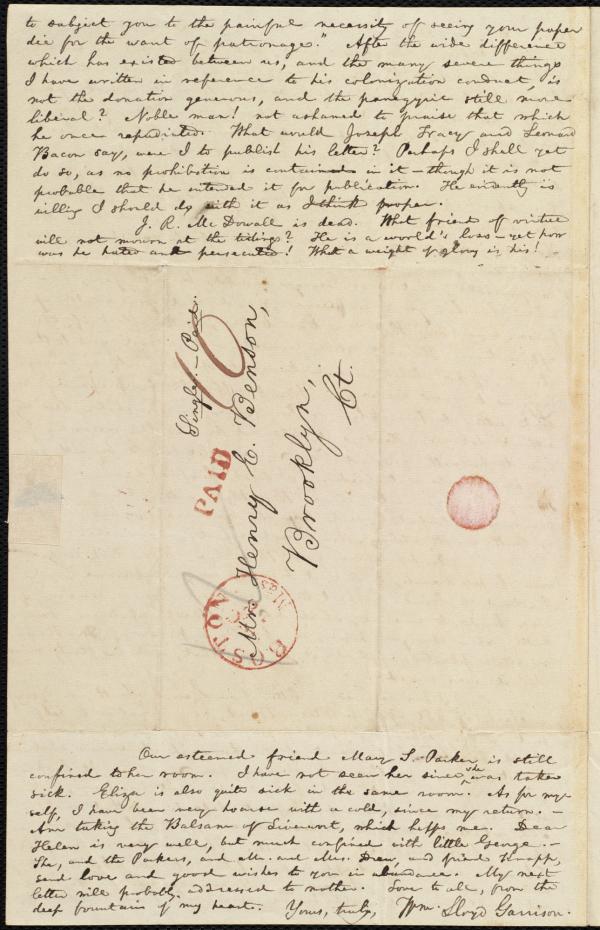 to subject you to the painful necessity of seeing your paper
die for the want of patronage." After the wide difference
which has existed between us, and the many severe things
I have written in reference to his colonization conduct, is
not the donation generous, and the panegyric still more
liberal? Noble man! not ashamed to praise that which
he once repudiated. What would Joseph Tracy and Leonard
Bacon say, were I to publish his letter? Perhaps I shall yet
do so, as no prohibition is contained in it — though it is not
probable that he intended it for publication. He evidently is
willing I should do with it as I think proper.
J. R. McDowall is dead. What friend of virtue
will not mourn at the tidings? He is a world's loss — yet how
was he hated and persecuted! What a weight of glory is his!
Single. — Paid.
10
PAID
Mr. Henry E. Benson,
Brooklyn,
Ct.
BOSTON
Mas
Our esteemed friend Mary S. Parker is still
confined to her room. I have not seen her since she was taken
sick. Eliza is also quite sick in the same room. As for my-
self, I have been very hoarse with a cold, since my return. —
Am taking the Balsam of Liverwort, which helps me. Dear
Helen is very well, but much confined with little George. —
She, and the Parkers, and Mr. and Mrs. Drew, and friend Knapp,
send love and good wishes to you in abundance. My next
letter will probably addressed to mother. Love to all, from the
deep fountain of my heart. Yours, truly, Wm. Lloyd Garrison.